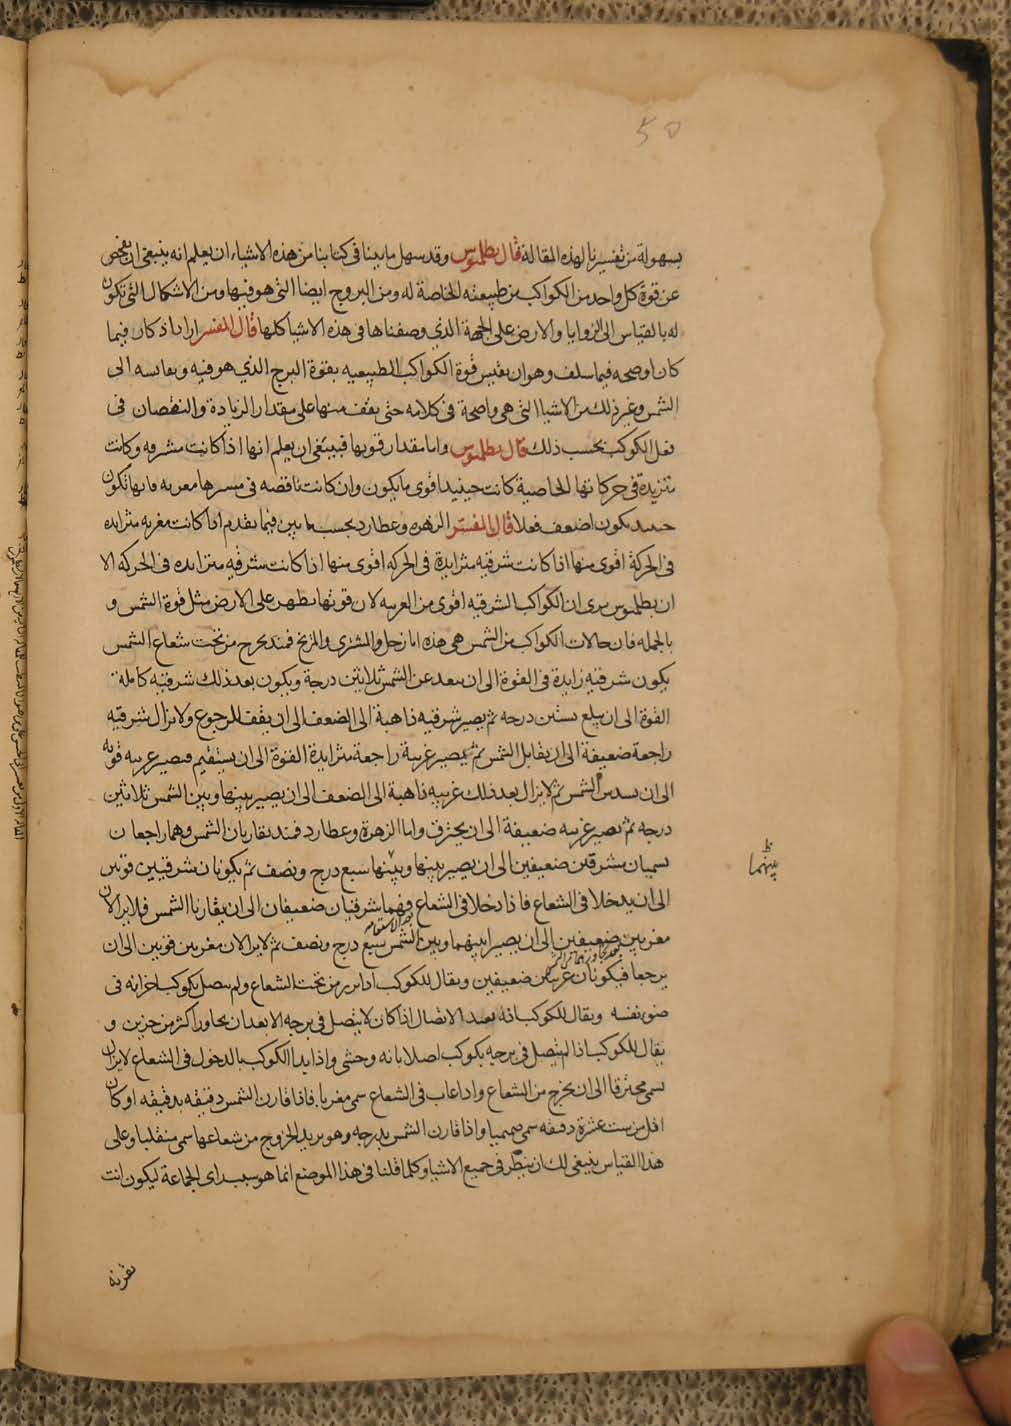 50
بسهولة من تفسيرنا لهذه المقالة قال بطلميوس وقد سهل ما بينا في كتابنا من هذه الاشياء ان يعلم انه ينبغي ان يفحص
عن قوة كل واحد من الكواكب من طبيعته الخاصة له ومن البروج ايضا التي هو فيها ومن الاشكال التي تكون
له بالقياس الى الزوايا والارض على الجهة الذي وصفناها في هذه الاشيا كلها قال المفسر اراد اذكار فيما
كان اوضحه فيما سلف وهو ان يقيس قوة الكواكب الطبيعيه بقوة البرج الذي هو فيه وبقايسه الى
الشمس وغير ذلك من الاشيا التي هي واضحة في كلامه حتى يقف منها على مقدار الزيادة والنقصان في
فعل الكوكب بحسب ذلك قال بطلميوس واما مقدار قوتها فينبغي ان يعلم انها اذا كانت مشرقه وكانت
متزيدة في حركاتها الخاصية كانت حينيذ اقوى ما يكون وان كانت ناقصه في مسيرها مغربه فانها تكون
حينيذ يكون اضعف فعلا قال المفسر الزهره وعطارد بحسب ما بين فيما تقدم اذا كانت مغربه متزايده
في الحركة اقوى منها اذا كانت شرقيه متزايدة في الحركه اقوى منها اذا كانت شرقيه متزايده في الحركه الا
ان بطلميوس يرى ان الكواكب الشرقيه اقوى من الغربيه لان قوتها تظهر على الارض مثل قوة الشمس و
بالجمله فان حالات الكواكب من الشمس هي هذه اما زحل والمشتري والمريخ فمنذ يخرج من تحت شعاع الشمس
يكون شرقيه زايدة في القوة الى ان يبعد عن الشمس ثلاثين درجة ويكون بعد ذلك شرقيه كاملة
القوة الى ان يبلغ ستين درجه ثم يصير شرقيه ذاهبة الى الضعف الى ان يقف للرجوع ولا يزال شرقيه
راجعة ضعيفة الى ان يقابل الشمس ثم يصير غربية راجعة متزايدة القوة الى ان يستقيم فيصير غربيه قويه
الى ان يسدس الشمس ثم لا يزال بعد ذلك غربيه ذاهبة الى الضعف الى ان يصير بينها وبين الشمس ثلاثين
درجه ثم يصير غربيه ضعيفة الى ان يحترق واما الزهرة وعطارد فمنذ يقاربان الشمس وهما راجعان
يسميان مشرقين ضعيفين الى ان يصير بينها وبينها سبع درج ونصف ثم يكونان شرقيين قويين
الى ان يدخلا في الشعاع فاذا دخلا في الشعاع فهما شرقيان ضعيفان الى ان يقارنا الشمس فلا يزالان
مغربين ضعيفين الى ان يصير بينهما وبين الشمس سبع درج ونصف ثم لا يزالان مغربين قويين الى ان
يرجعا فيكونان غربيين ضعيفين ويقال للكوكب اذا برز من تحت الشعاع ولم يتصل بكوكب اخر انه في
ضو نفسه ويقال للكوكب انه بعيد الاتصال اذا كان لا يتصل في برجه الا بعد ان يجاوز اكثر من جزين و
يقال للكوكب اذا لم يتصل في برجه بكوكب اصلا بانه وحشي واذا بدا الكوكب بالدخول في الشعاع لا يزال
يسمى محترقا الى ان يخرج من الشعاع واذا غاب في الشعاع سمى مغربا فاذا قارن الشمس دقيقه بدقيقه او كان
اقل من ست عشرة دقيقه سمى صميميا واذا قارن الشمس بدرجه وهو يريد الخروج من شعاعها سمى منفلبا وعلى
هذا القياس ينبغي لك ان ينظر في جميع الاشيا وكلما قلنا في هذا الموضع انما هو بحسب راى الجماعة ليكون انت
بينهما